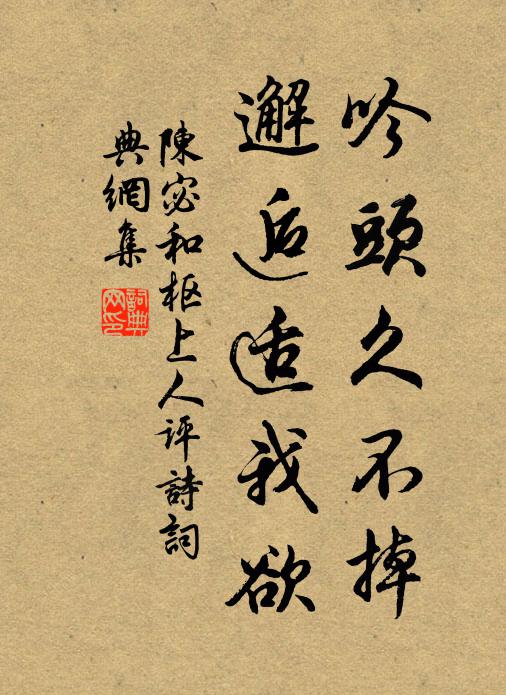 吟頭久不掉
邂逅适我欲
陳宓和枢上人评詩詞
典網集
詞典網印